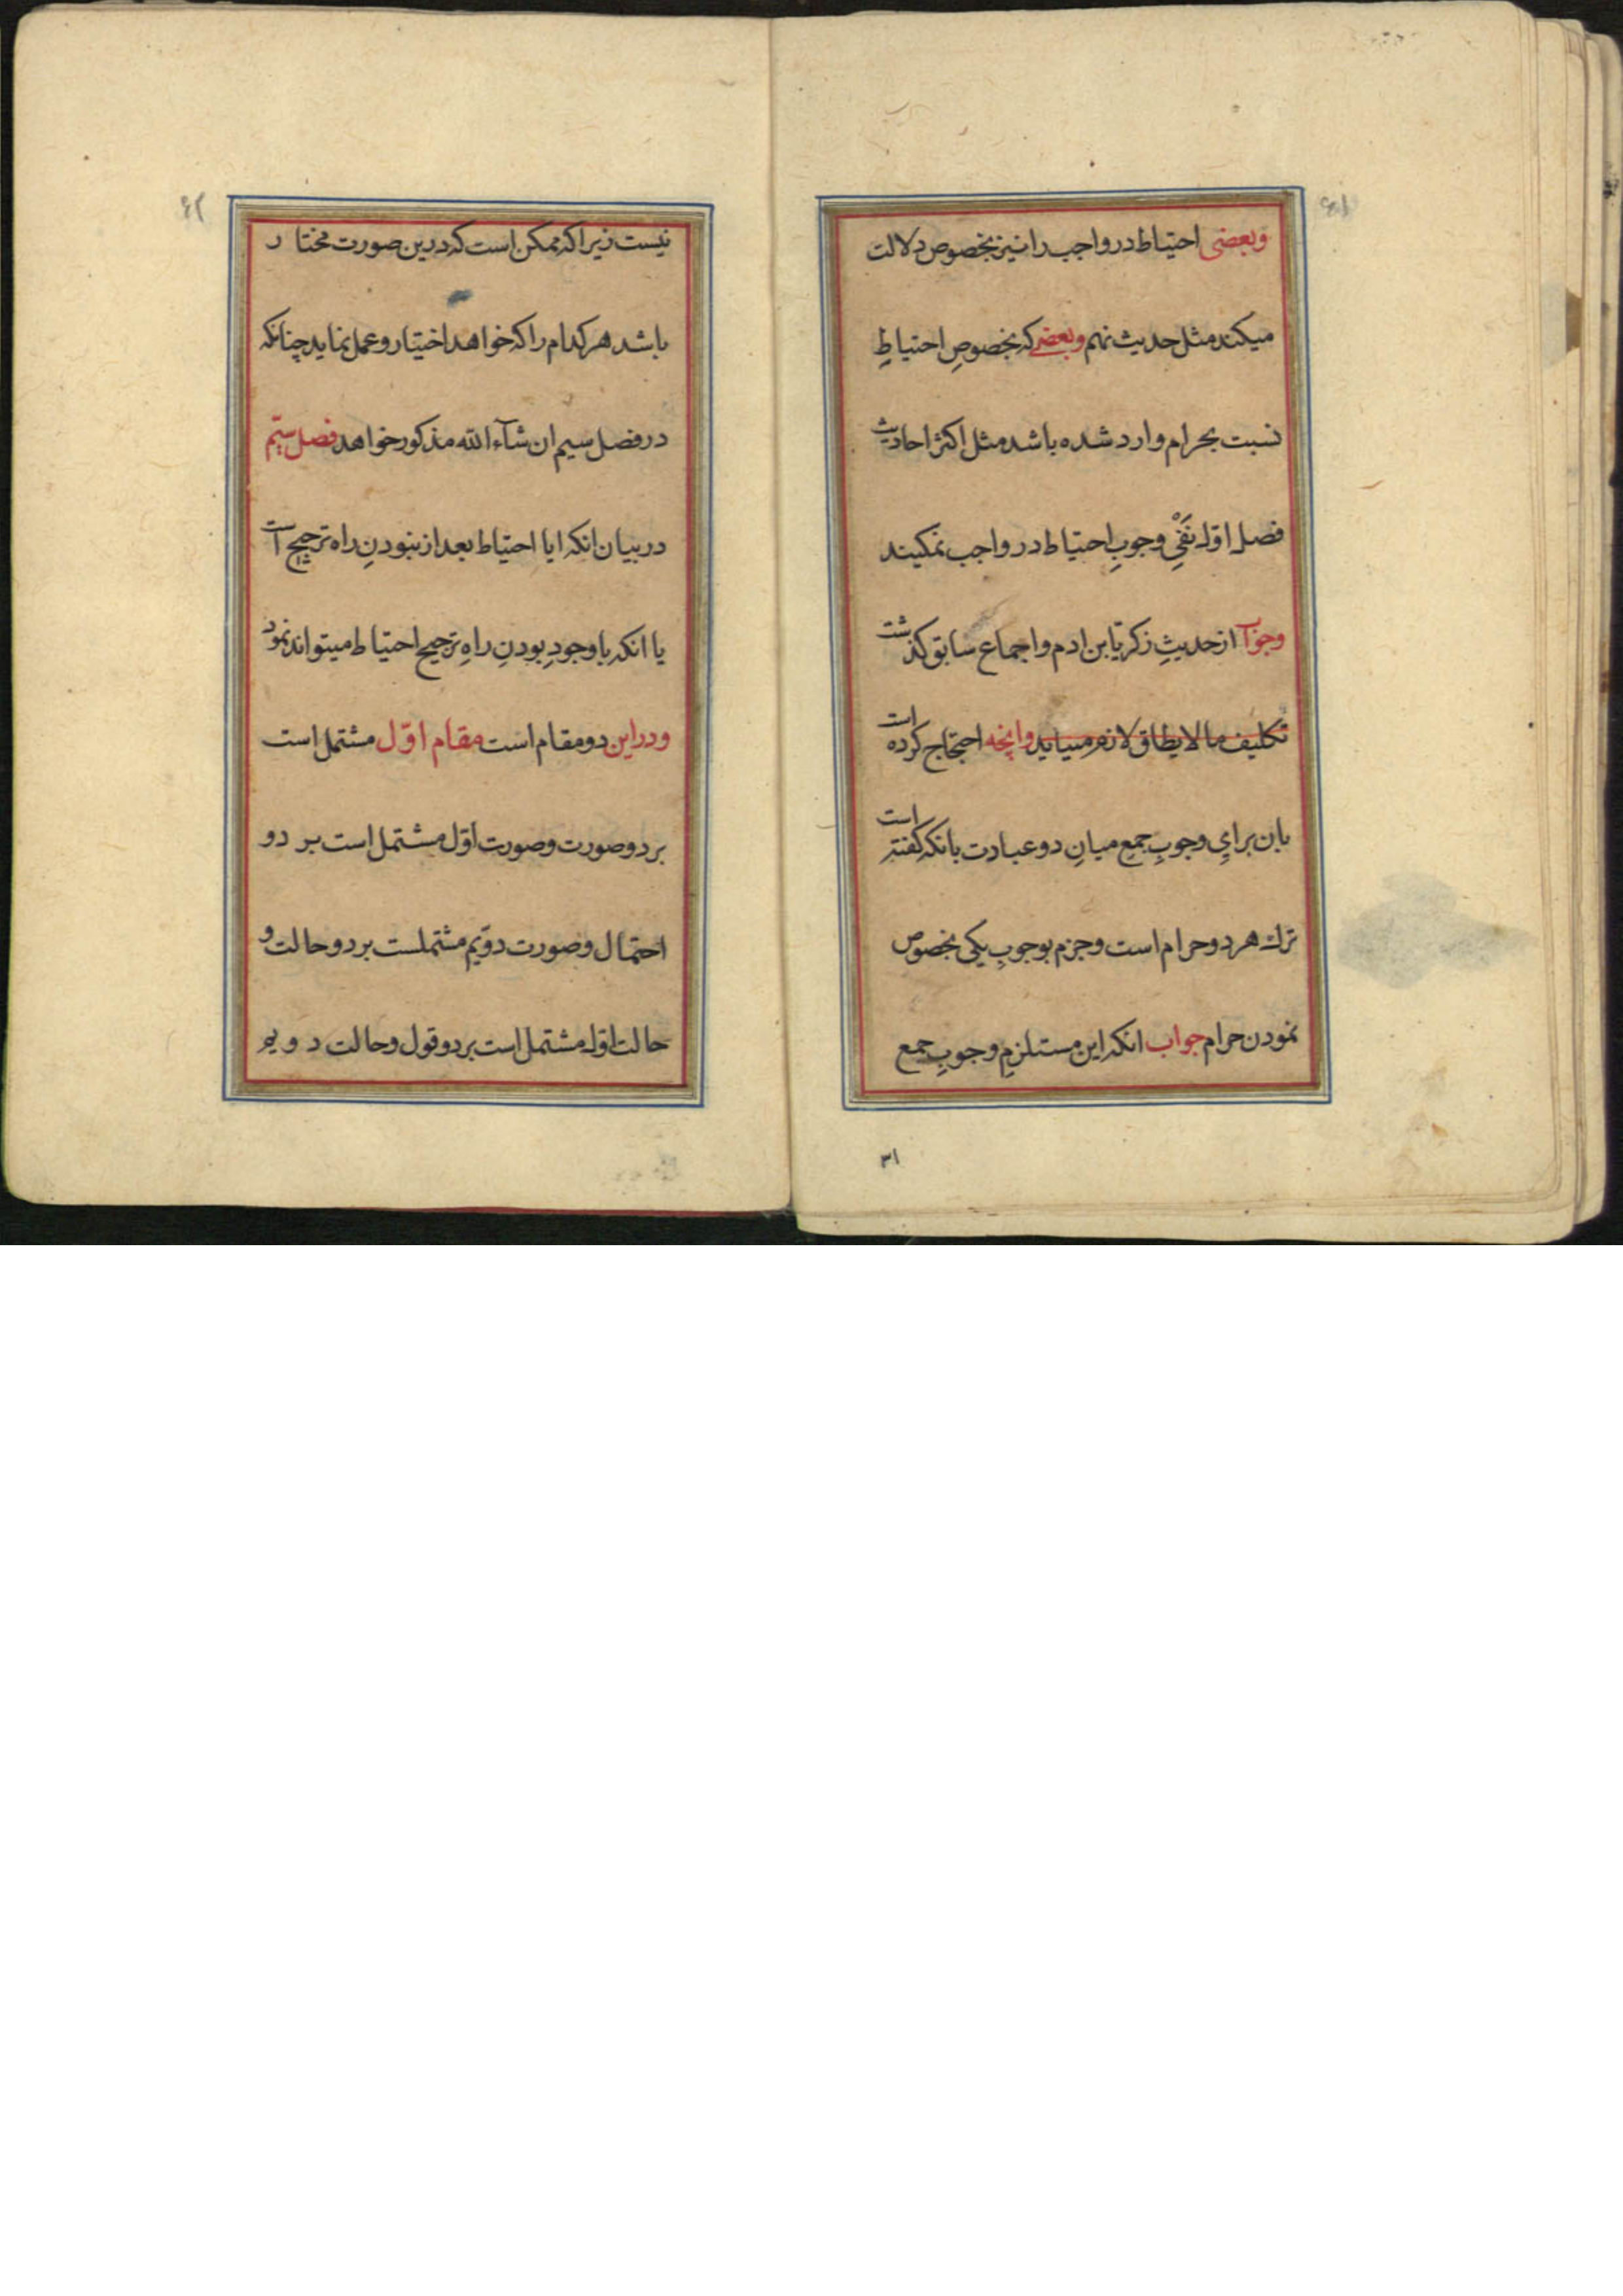 ۶۱
وبعضی احتیاط در واجب را نیز بخصوص دلالت
میکنند مثل حدیث نهم وبعضی که بخصوصِ احتیاطِ
نسبت بحرام وارد شده باشد مثل اکثر احادیث
فصل اول نَفْیِ وجوبِ احتیاط در واجب نمیکنند
وجوآب از حدیثِ زکریّا بن ادم واجماع سابق گذشت
تکلیف مالایطاق لازم میاید وانچه احتجاج کرده است
بان برایِ وجوبِ جمع میانِ دو عبادت بانکه گفته است
ترك هر دو حرام است وجزم بوجوبِ یکی بخصوص
نمودن حرام جواب انکه این مستلزمِ وجوبِ جمع
۳۱
۶۲
نیست زیرا که ممکن است که درین صورت مختار
باشد هر کدام را که خواهد اختیار وعمل نماید چنانکه
در فصل سیم ان شآء الله مذکور خواهد فصل سیّم
در بیان انکه ایا احتیاط بعد از نبودنِ راه ترجیح است
یا انکه باوجودِ بودنِ راهِ ترجیح احتیاط میتواند نمود
ودر این دو مقام است مقام اوّل مشتمل است
بر دو صورت وصورت اوّل مشتمل است بر دو
احتمال وصورت دوّیم مشتملست بر دو حالت و
حالت اول مشتمل است بر دو قول وحالت دویم